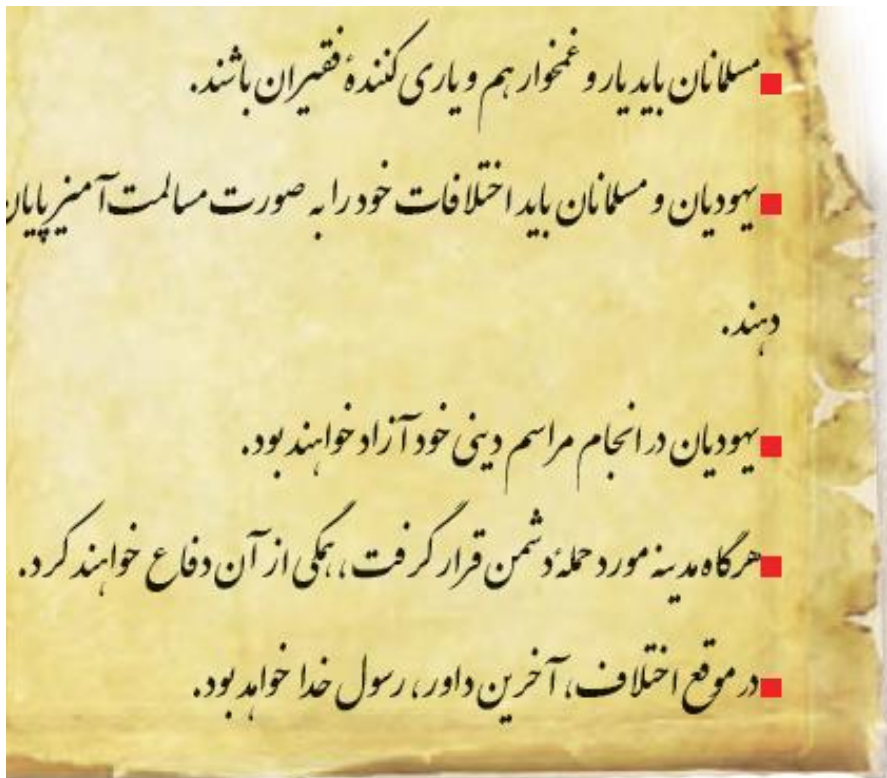 ■ مسلمانان باید یار و غمخوار هم و یاری کنندهٔ فقیران باشند.
■ یهودیان و مسلمانان باید اختلافات خود را به صورت مسالمت‌آمیز پایان
دهند.
■ یهودیان در انجام مراسم دینی خود آزاد خواهند بود.
■ هرگاه مدینه مورد حملهٔ دشمن قرار گرفت، همگی از آن دفاع خواهند کرد.
■ در موقع اختلاف، آخرین داور، رسول خدا خواهد بود.